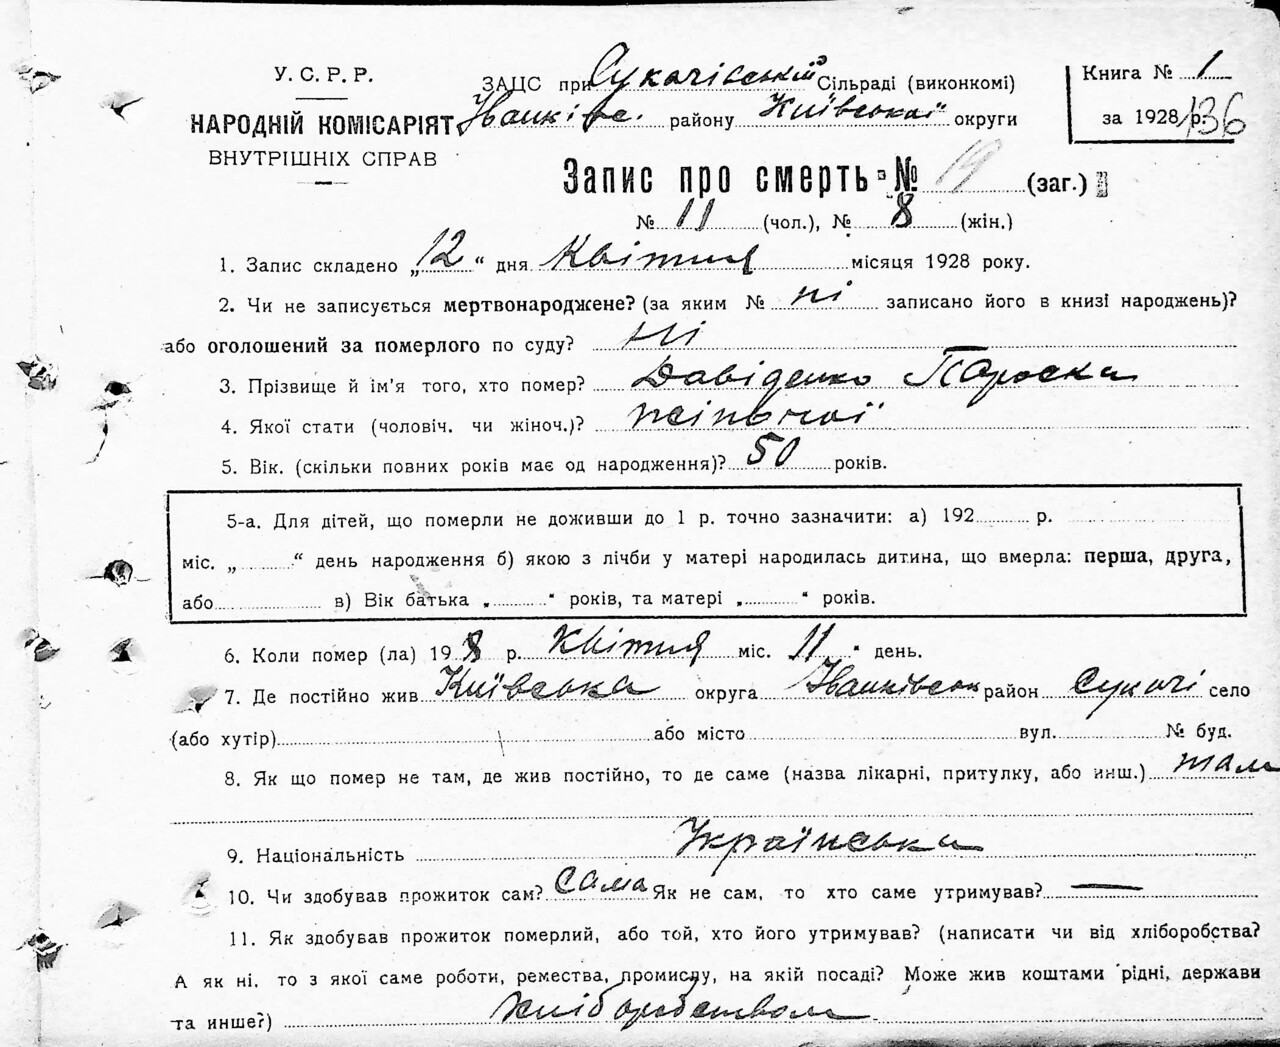 У. С. Р. Р.
НАРОДНІЙ КОМІСАРІЯТ
ВНУТРІШНІХ СПРАВ
ЗАЦС при Сукачівській Сільраді (виконкомі)
Іванківс. району Київської округи
Книга № 1
за 1928 р. 136
Запис про смерть № 19 (заг.)
№ 11 (чол.), № 8 (жін.)
1. Запис складено „12“ дня Квітня місяця 1928 року.
2. Чи не записується мертвонароджене? (за яким № ні записано його в книзі народжень)?
або оголошений за померлого по суду? Ні
3. Прізвище й ім'я того, хто помер? Давіденко Пороска
4. Якої стати (чоловіч. чи жіноч.)? жіночої
5. Вік. (скільки повних років має од народження)? 50 років.
5-а. Для дітей, що померли не доживши до 1 р. точно зазначити: а) 192 р.
міс. „ “ день народження б) якою з лічби у матері народилась дитина, що вмерла: перша, друга,
або в) Вік батька „ “ років, та матері „ “ років.
6. Коли помер (ла) 198 р. Квітня міс. 11 “ день.
7. Де постійно жив Київська округа Іванківськ район Сукачі село
(або хутір) або місто вул. № буд.
8. Як що помер не там, де жив постійно, то де саме (назва лікарні, притулку, або инш.) там
9. Національність Українська
10. Чи здобував прожиток сам? сама Як не сам, то хто саме утримував? —
11. Як здобував прожиток померлий, або той, хто його утримував? (написати чи від хліборобства?
А як ні, то з якої саме роботи, ремества, промислу, на якій посаді? Може жив коштами рідні, держави
та инше?) Хліборобством